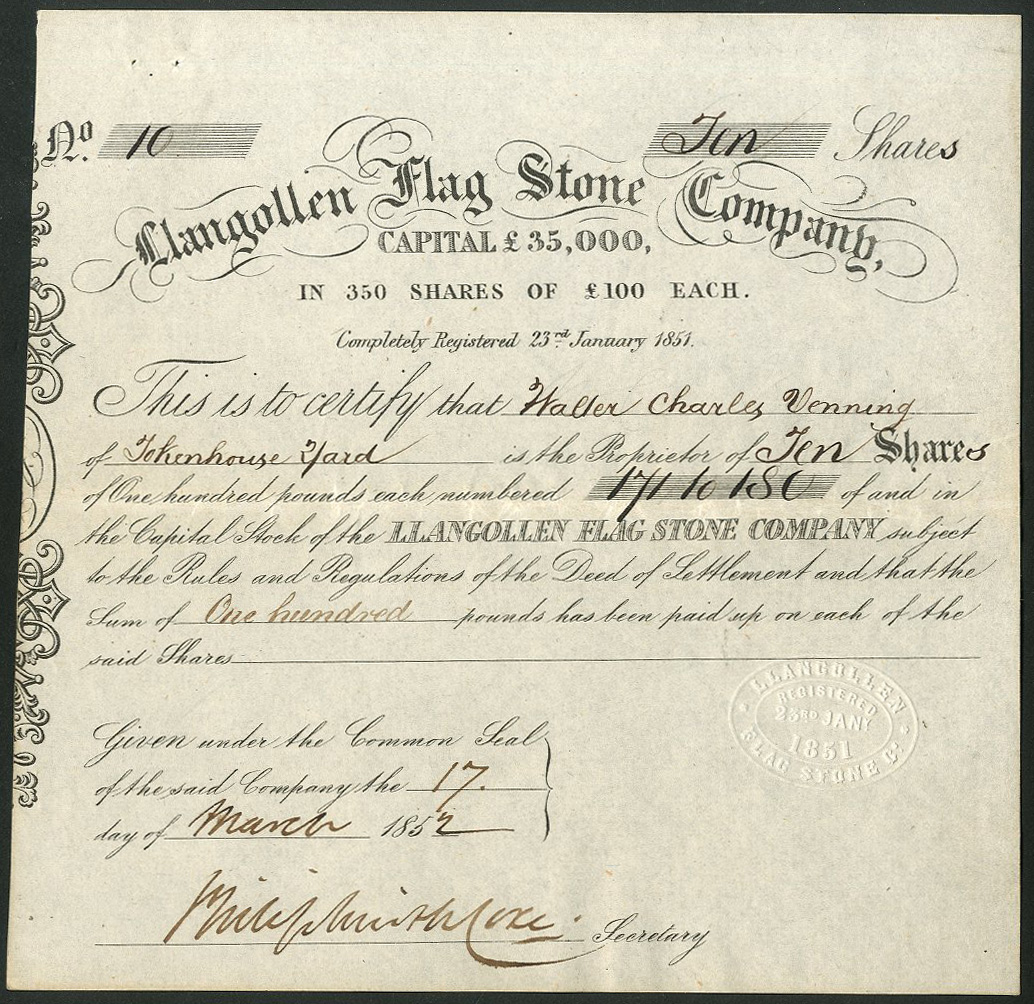 No. 10 Ten Shares
Llangollen Flag Stone Company,
CAPITAL £35,000,
IN 350 SHARES OF £100 EACH.
Completely Registered 23rd. January 1851.
This is to certify that Walter Charles Venning
of Tokenhouse Yard is the Proprietor of Ten Shares
of One hundred pounds each numbered 171 to 180 of and in
the Capital Stock of the LLANGOLLEN FLAG STONE COMPANY subject
to the Rules and Regulations of the Deed of Settlement and that the
Sum of One hundred pounds has been paid up on each of the
said Shares
LLANGOLLEN
REGISTERED
23RD JANY
1851
FLAG STONE Co
Given under the Common Seal
of the said Company the 17.
day of March 1852
Philip Smith Coxe
Secretary